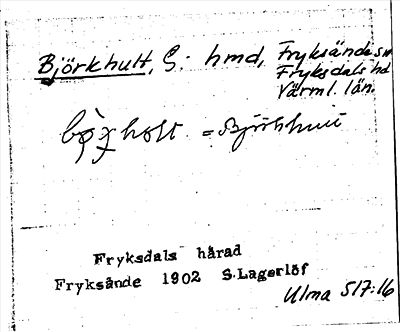 Björkhult, G: hmd, Fryksände sn
Fryksdals hd
Värml. län.
= Björkhult
Fryksdals härad
Fryksände 1902 S.Lagerlöf
Ulma 517:16